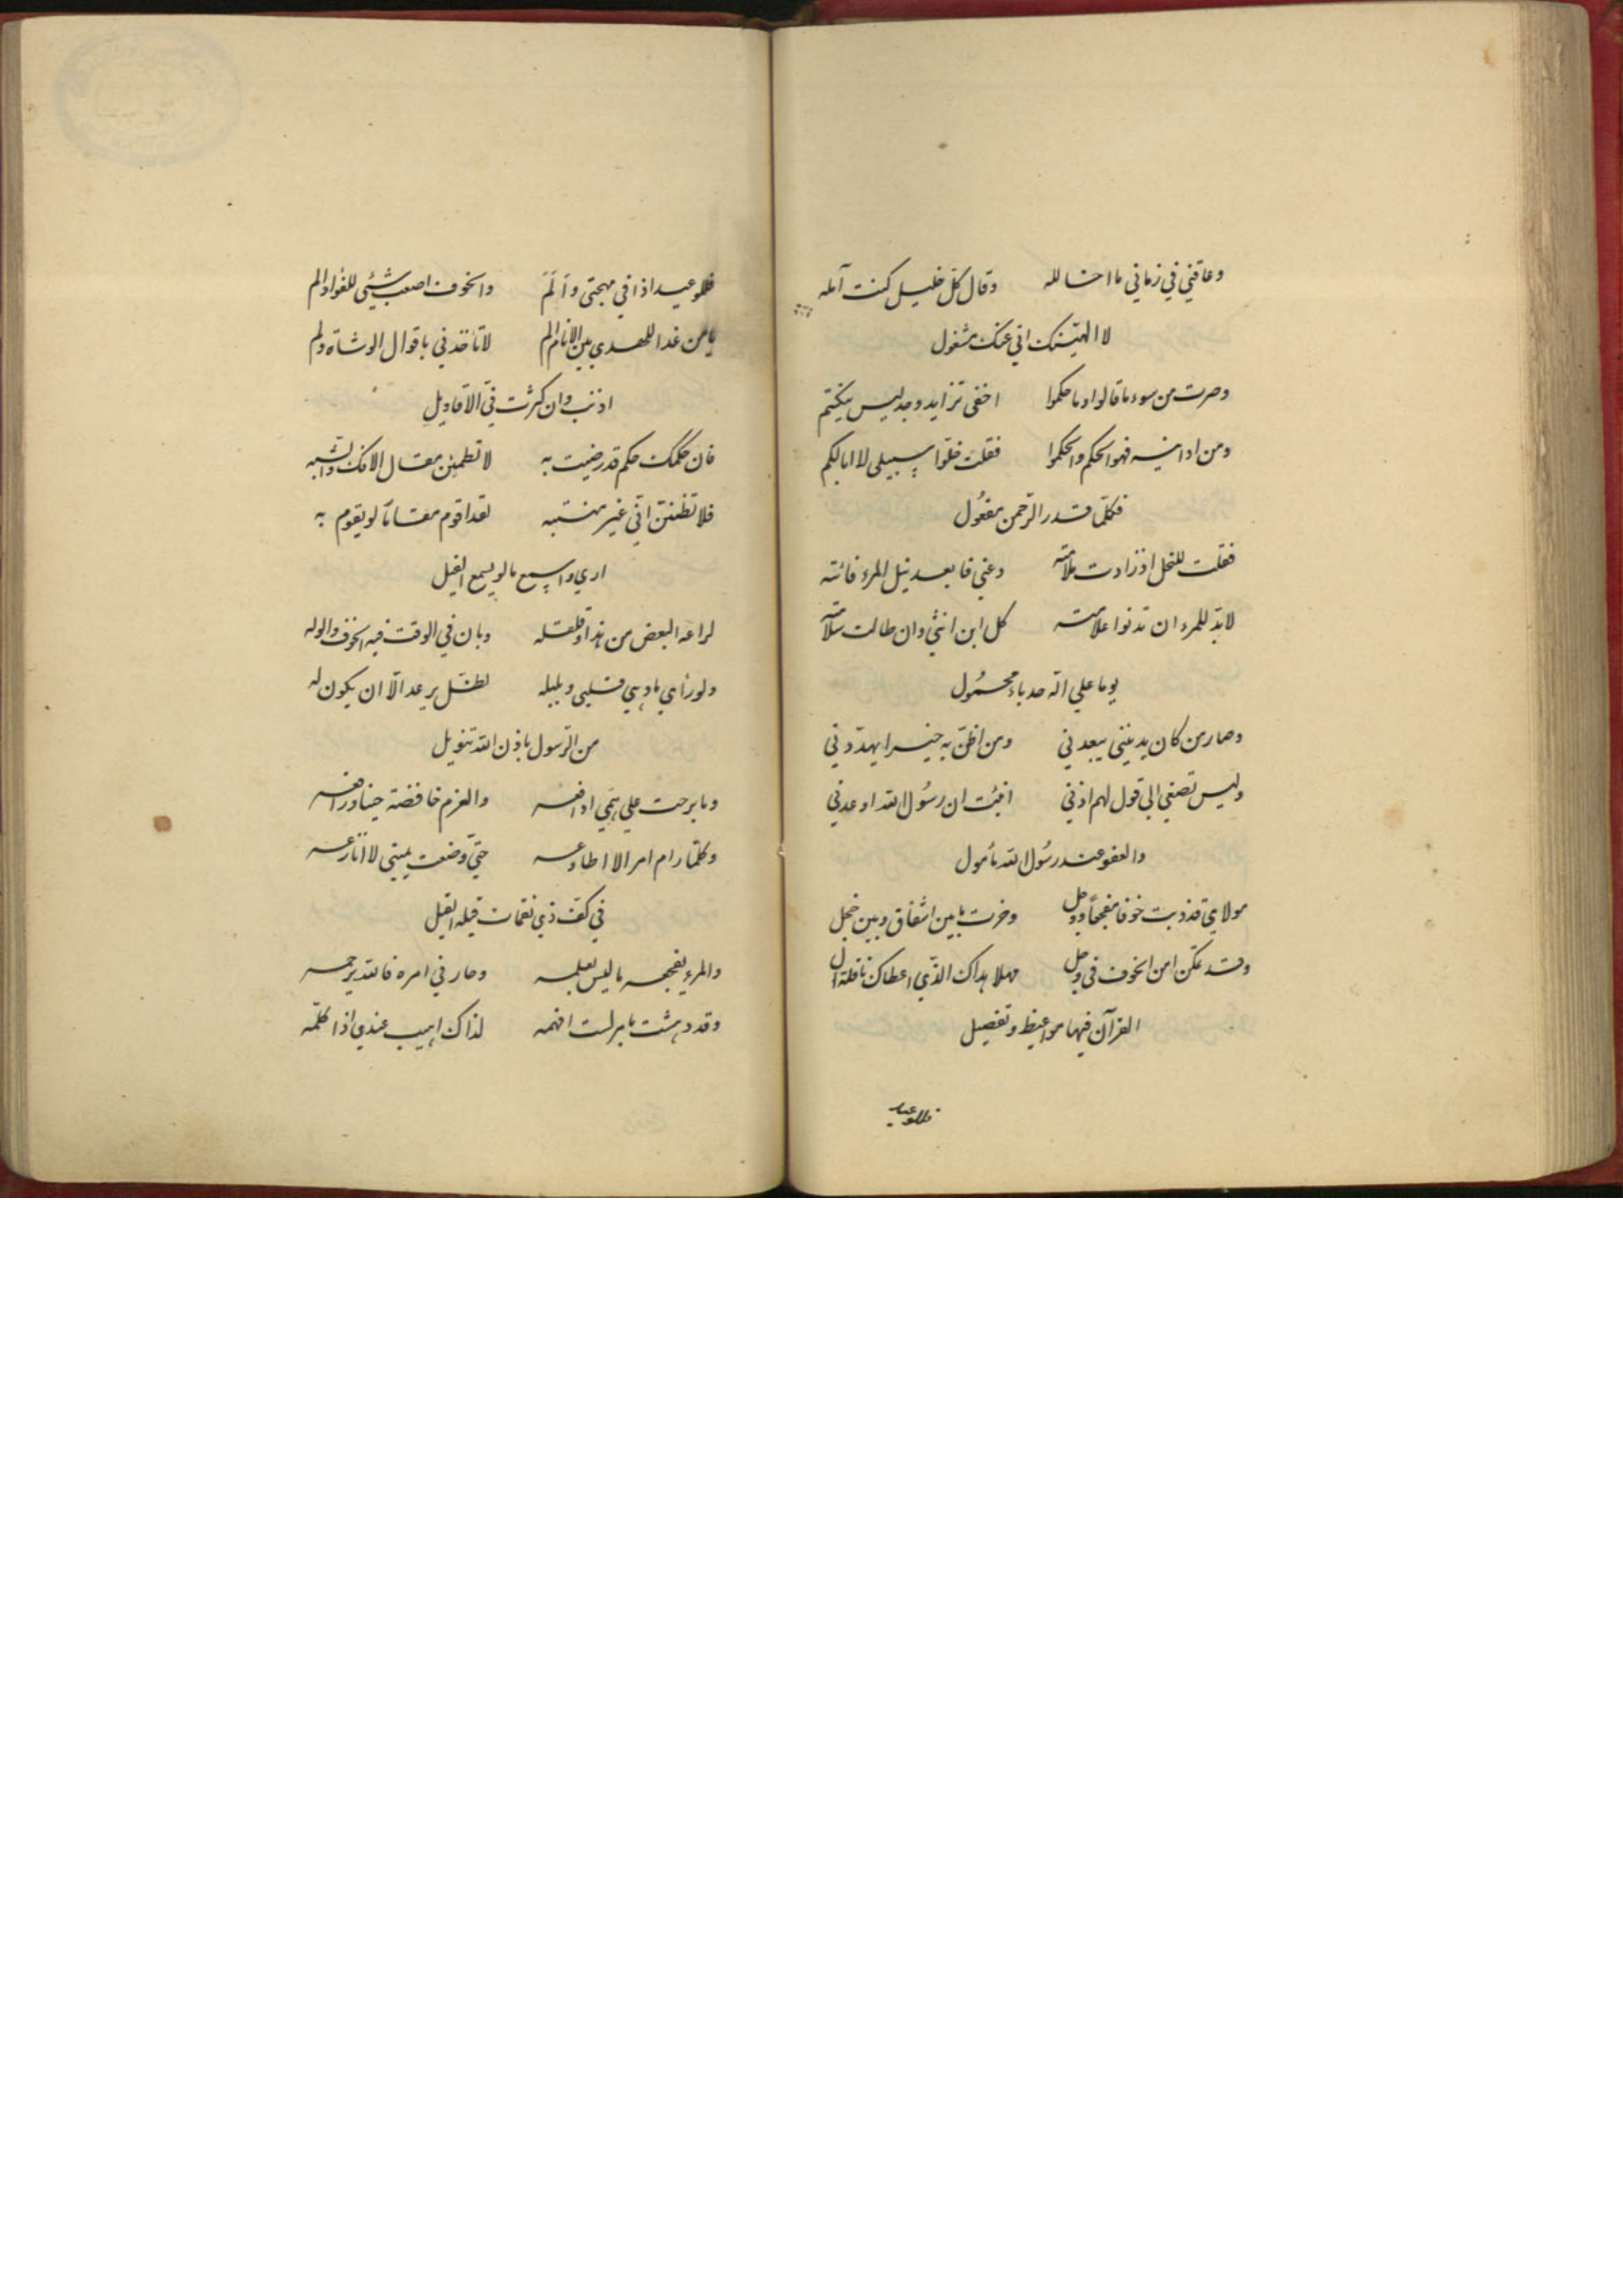 وعاقني في زماني ما احــا لله وقال كلّ خليل كنت آمله
لا الهينك اني عنك مشغول
وصرت من سوء ما قالوا وما حكموا اخفى تزايد وجد ليس يكتتم
ومن اداينه فهو الحكم والحكموا فقلت خلّوا سبيلي لا ابالكم
فكلّما قدر الرّحمن مفعُول
فقلت للخل اذ زادت ملامته دعني فا بعد نيل المرء فائته
لا بدّ للمرء ان تدنوا علامته كل ابن انثى وان طالت سلامته
يوما على آلة حدباء محمُول
وصار من كان يدنيني يبعدني ومن اظنّ به خيرا يهدّدني
وليس تصغي الى قول لهم اذني انبئت ان رسُول الله اوعدني
والعفو عند رسُول الله مأمول
مولاي قد ذبت خوفا مفجعاً ووجل وخرت ما بين اشفاق وبين خجل
وقد تمكّن امن الخوف في وجل مهلا هداك الذّي اعطاك نافلة ال
القرآن فيها مواعيظ وتفصيل
فللوعيد
فللوعيد اذا في مهجتى وآلم والخوف اصعب شيئي للفؤاد الم
يا من غدا للهدى بين الانام الم لا تأخذني باقوال الوشاة ولم
اذنب وان كثرت فيّ الاقاويل
فان حكمك حكم قد رضيت به لا تطمئن مقال الافك والشبه
فلا تظننّ انّي غير منتبه لقد اقوم مقاماً لو يقوم به
ارى واسمع ما لو يسمع الفيل
لراعه البعض من هذا وقلقله وبان في الوقت فيه الخوف والوله
ولو رأى ما دهى قلبي وبلبله لظلّ يرعد الّا ان يكون له
من الرّسول باذن الله تنويل
وما برحت على همّي ادافعه والعزم خافضة حينا ورافعه
وكلّما رام امر الا اطاوعه حتّى وضعت يميني لا انازعه
في كف ذي نقمات قيله القيل
والمرء يفجعه ما ليس يعلمه وحار في امره فالله يرحمه
وقد دهشت بامر لست افهمه لذاك اهيب عندي اذ اكلّمه